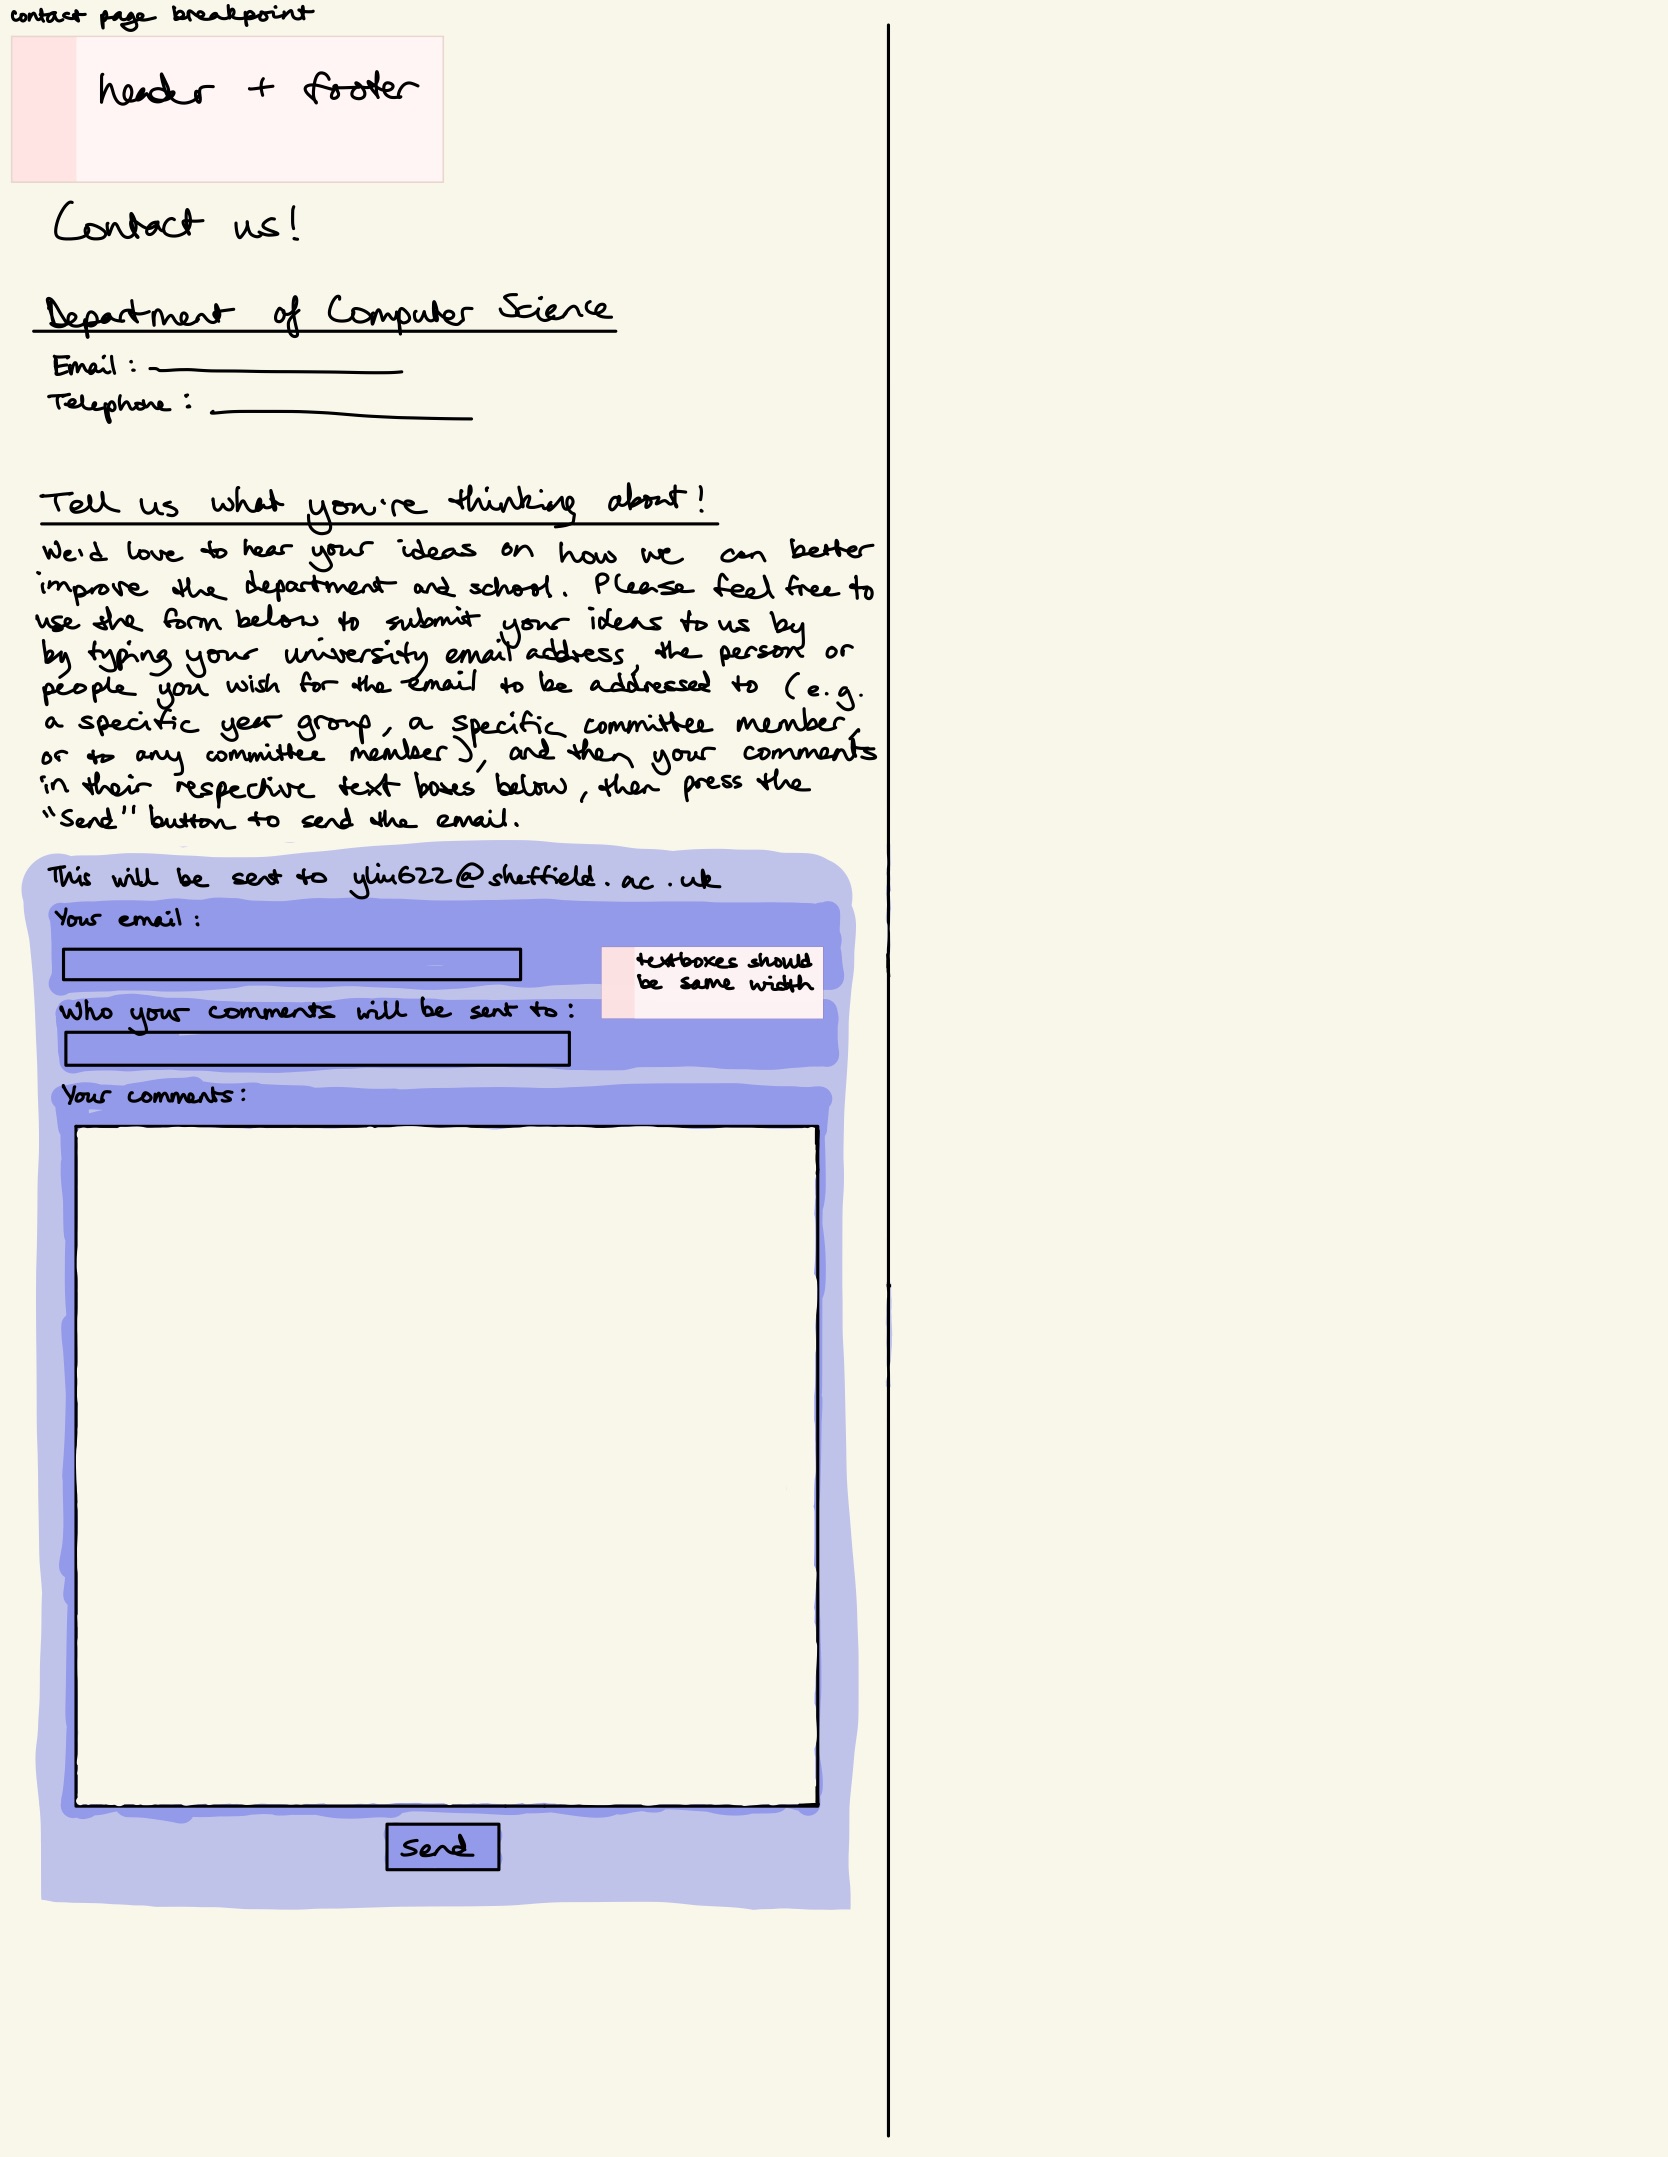 contact page breakpoint
header + footer
Contact us!
Department of Computer Science
Email :
Telephone :
Tell us what you're thinking about!
We'd love to hear your ideas on how we can better
improve the department and school. Please feel free to
use the form below to submit your ideas to us by
by typing your university email address, the person or
people you wish for the email to be addressed to (e.g.
a specific year group, a specific committee member,
or to any committee member), and then your comments
in their respective text boxes below, then press the
"Send" button to send the email.
This will be sent to yliu622@sheffield.ac.uk
Your email :
textboxes should
be same width
Who your comments will be sent to :
Your comments :
Send